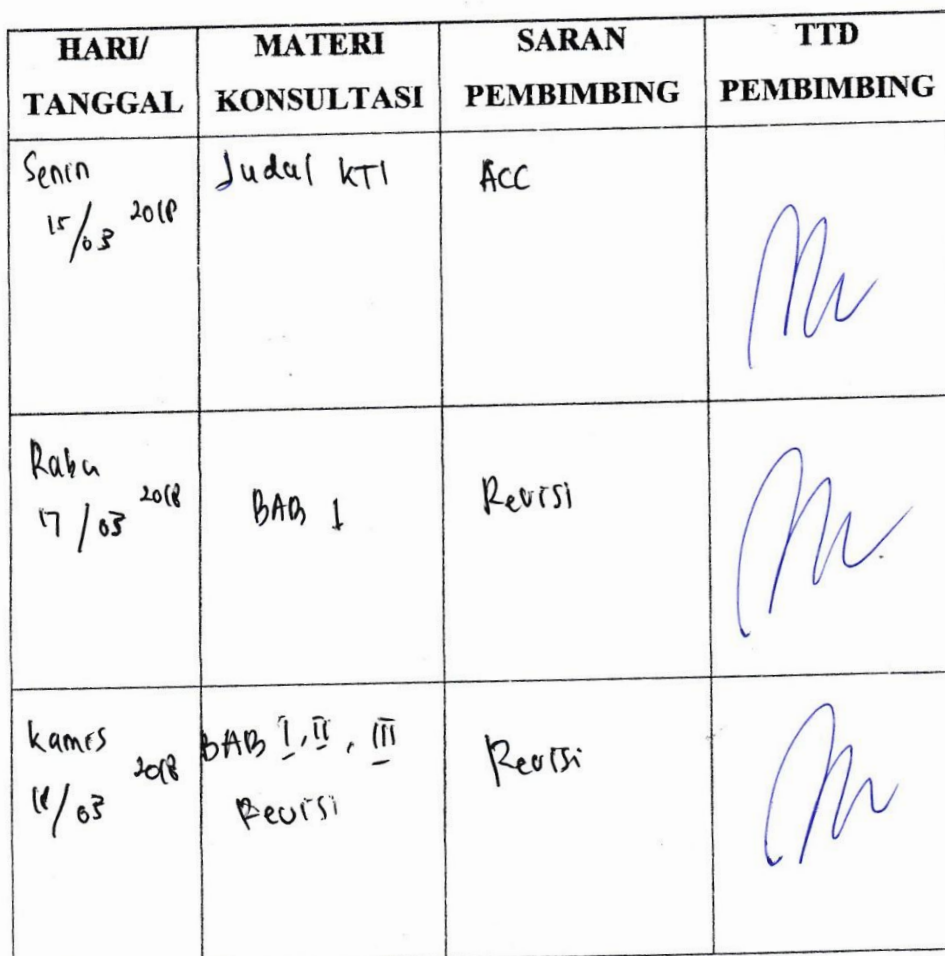 HARI/ TANGGAL
MATERI KONSULTASI
SARAN PEMBIMBING
TTD PEMBIMBING
Senin
15/03 2018
Judul KTI
ACC
Rabu
17/03 2018
BAB I
Revisi
Kamis
18/03 2018
BAB I, II, III
Revisi
Revisi